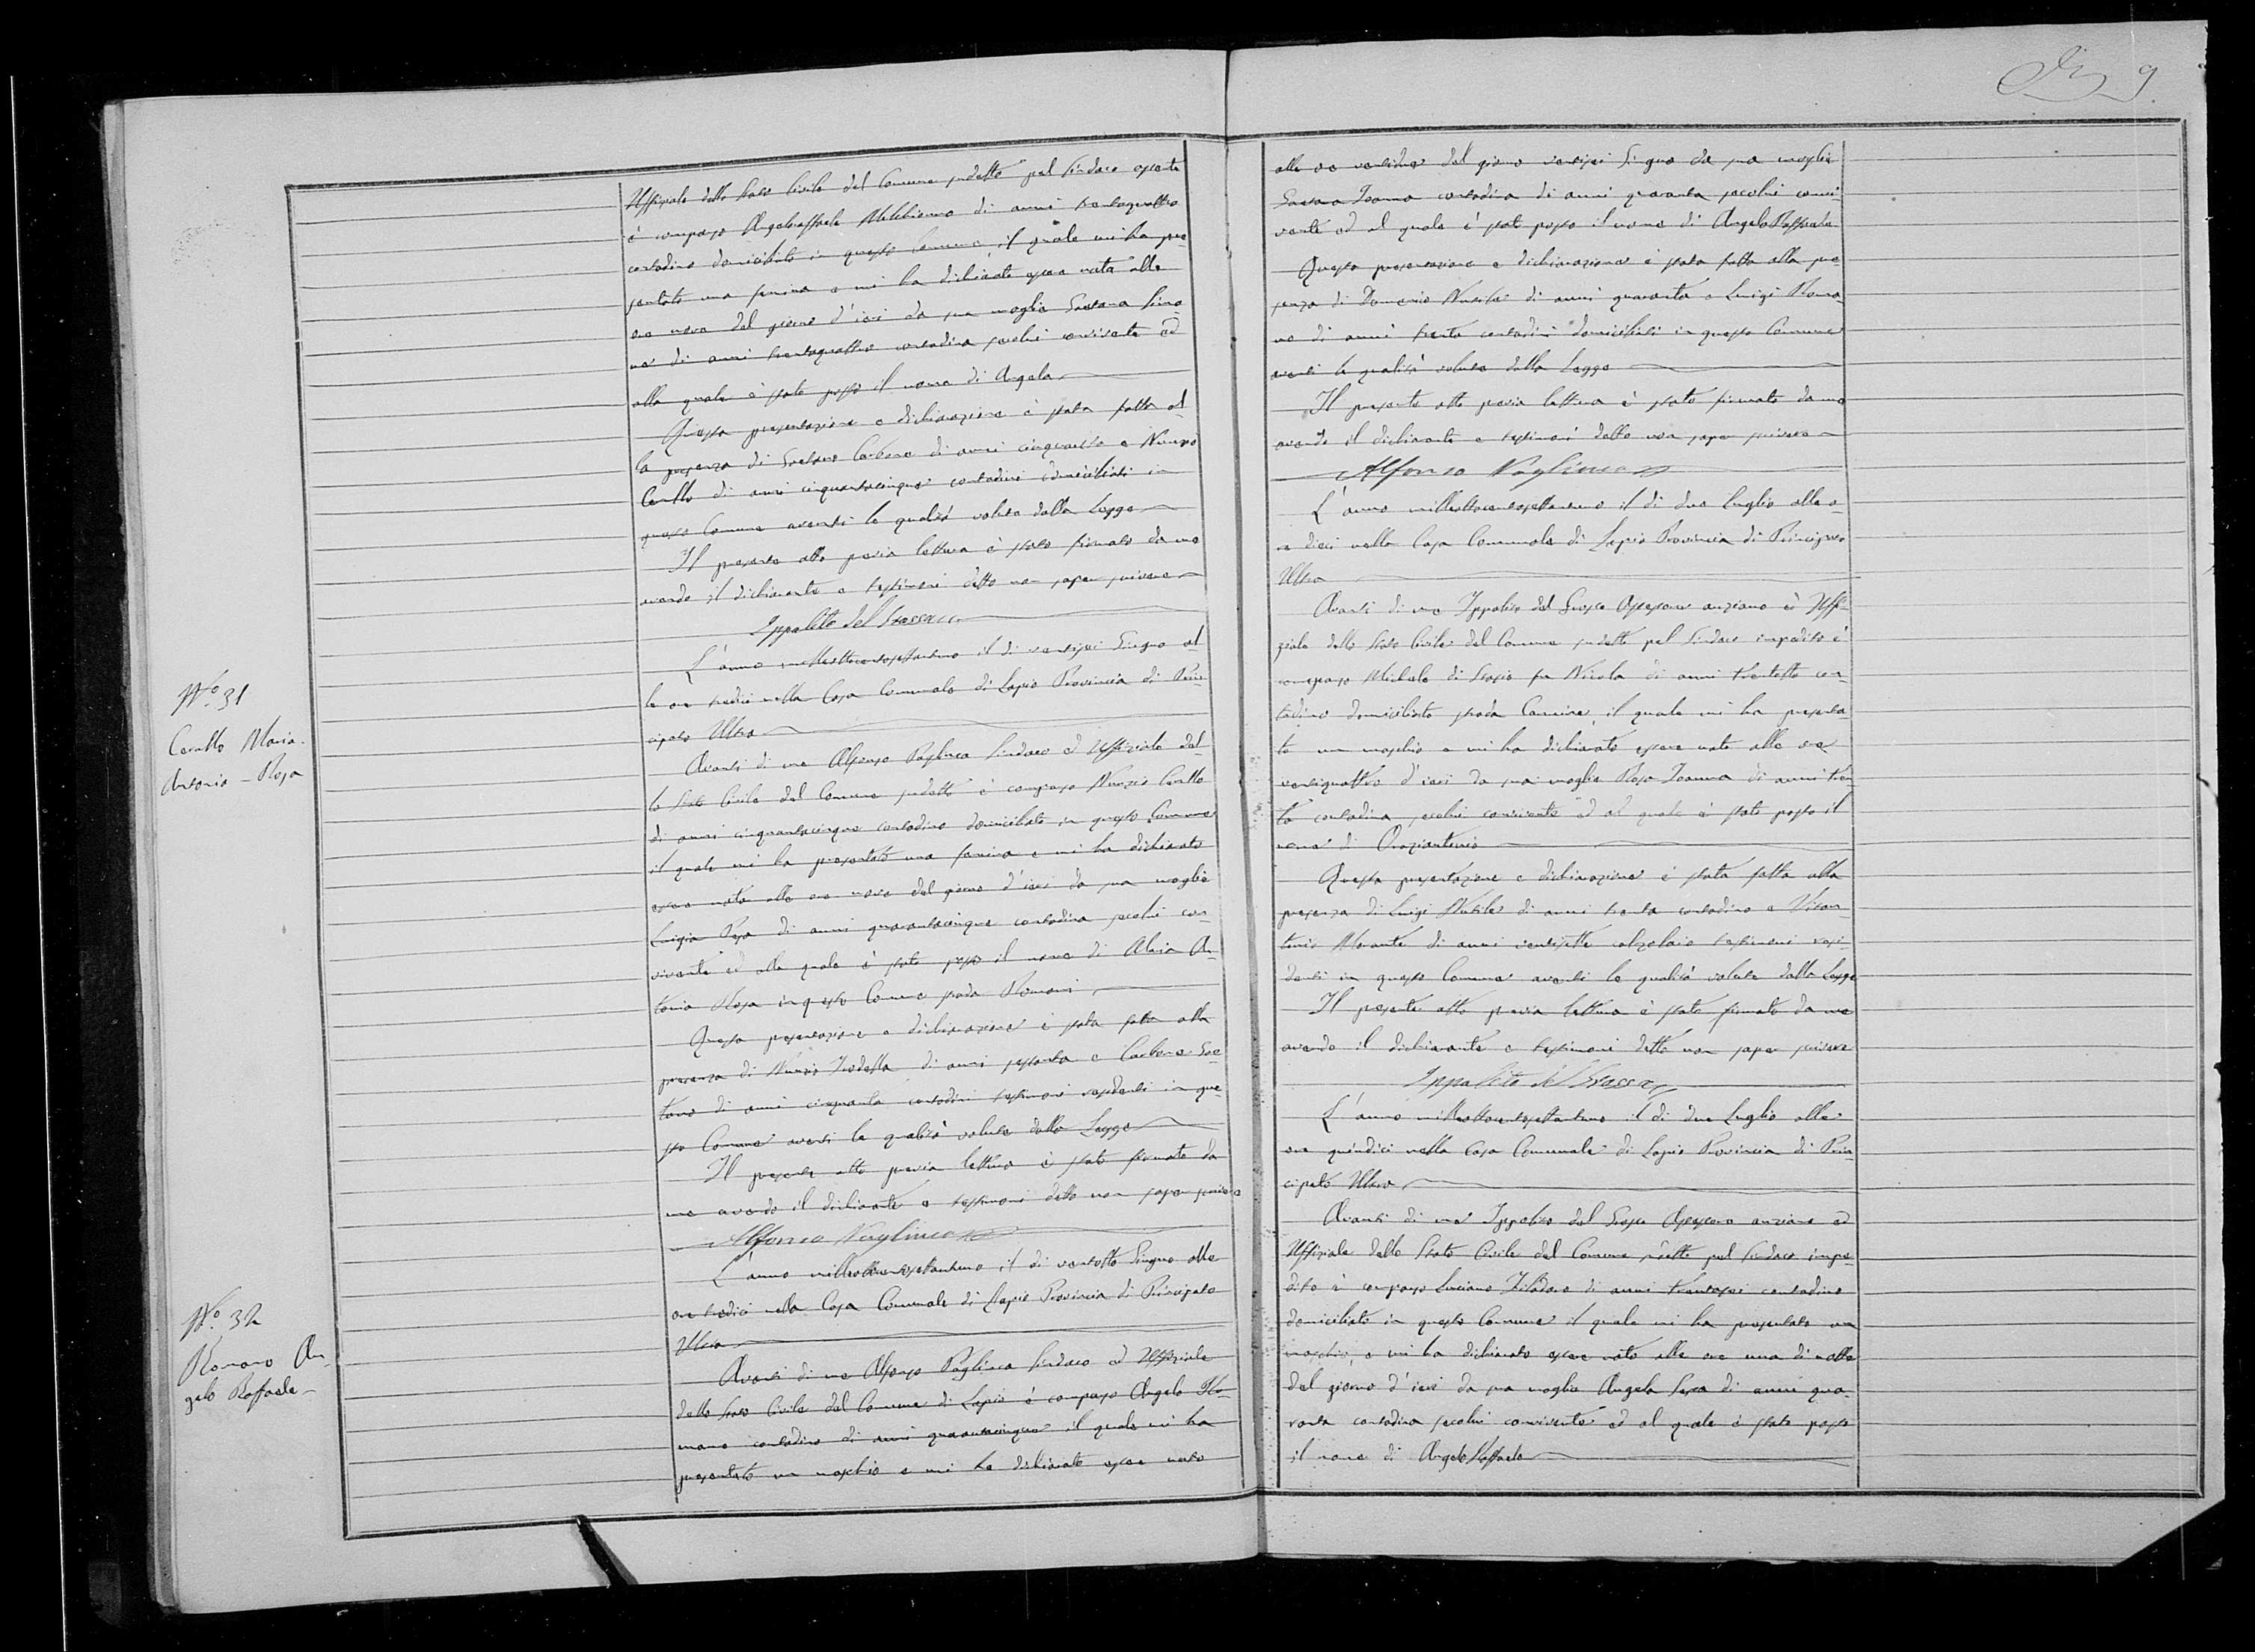 9
Uffiziale dello Stato Civile del Comune sudetto pel Sindaco assente
è comparso Angeloraffaele Melchionno di anni trentaquattro
contadino domiciliato in questo Comune, il quale mi ha pre
sentato una femina e mi ha dichiarato essere nata alle
ore nove del giorno d'ieri da sua moglie Gaetana
di anni trentaquattro contadina secolui convivente ed
alla quale è stato posto il nome di Angela
Questa presentazione e dichiarazione è stata fatta al
la presenza di Gaetano Carbone di anni cinquanta e Nunzio
Cerullo di anni cinquantacinque contadini domiciliati in
questo Comune aventi le qualità volute dalla Legge
Il presente atto previa lettura è stato firmato da me
avendo il dichiarante e testimoni detto non saper scrivere
Ippolito del Grosso
L'anno milleottocentosettantuno il dì ventisei Giugno al
le ore tredici nella Casa Comunale di Lapio Provincia di Prin
cipato Ultra
Avanti di me Alfonso Paglinca Sindaco ed Uffiziale del
lo Stato Civile del Comune sudetto è comparso Nunzio Cerullo
di anni cinquantacinque contadino domiciliato in questo Comune
il quale mi ha presentato una femina e mi ha dichiarato
essere nata alle ore nove del giorno d'ieri da sua moglie
Luigia di anni quarantacinque contadina secolui con
vivente ed alla quale è stato posto il nome di Maria An
tonia Rosa in questo Comune strada Romani
Questa presentazione e dichiarazione è stata fatta alla
presenza di Nunzio di anni sessanta e Carbone Gae
tano di anni cinquanta contadini testimoni residenti in que
sto Comune aventi le qualità volute dalla Legge
Il presente atto previa lettura è stato firmato da
me avendo il dichiarante e testimoni detto non saper scrivere
Alfonso Paglinca
L'anno milleottocentosettantuno il dì ventotto Giugno alle
ore tredici nella Casa Comunale di Lapio Provincia di Principato
Ultra
Avanti di me Alfonso Paglinca Sindaco ed Uffiziale
dello Stato Civile del Comune di Lapio è comparso Angelo Ro
mano contadino di anni quarantacinque il quale mi ha
presentato un maschio e mi ha dichiarato essere nato
No. 31
Cerullo Maria
Antonia - Rosa
No. 32
Romano An
gelo Raffaele
alle ore ventidue del giorno ventisei Giugno da sua moglie
Gaetana Ioanna contadina di anni quaranta secolui convi
vente ed al quale è stato posto il nome di Angelo Raffaele
Questa presentazione e dichiarazione è stata fatta alla pre
senza di Domenico di anni quaranta e Luigi Roma
no di anni trenta contadini domiciliati in questo Comune
aventi le qualità volute dalla Legge
Il presente atto previa lettura è stato firmato da me
avendo il dichiarante e testimoni detto non saper scrivere
Alfonso Paglinca
L'anno milleottocentosettantuno il dì due Luglio alle o
re dieci nella Casa Comunale di Lapio Provincia di Principato
Ultra
Avanti di me Ippolito del Grosso Assessore anziano ed Uffi
ziale dello Stato Civile del Comune sudetto pel Sindaco impedito è
comparso Michele di Iorio fu Nicola di anni trentotto con
tadino domiciliato strada Carmine, il quale mi ha presenta
to un maschio e mi ha dichiarato essere nato alle ore
ventiquattro d'ieri da sua moglie Rosa Ioanna di anni tren
ta contadina secolui convivente ed al quale è stato posto il
nome di Oraziantonio
Questa presentazione e dichiarazione è stata fatta alla
presenza di Luigi di anni trenta contadino e Vitan
tonio Morante di anni ventisette calzolaio testimoni resi
denti in questo Comune aventi le qualità volute dalla Legge
Il presente atto previa lettura è stato firmato da me
avendo il dichiarante e testimoni detto non saper scrivere
Ippolito del Grosso
L'anno milleottocentosettantuno il dì due Luglio alle
ore quindici nella Casa Comunale di Lapio Provincia di Prin
cipato Ultra
Avanti di me Ippolito del Grosso Assessore anziano ed
Uffiziale dello Stato Civile del Comune sudetto pel Sindaco impe
dito è comparso Luciano di anni trentasei contadino
domiciliato in questo Comune il quale mi ha presentato un
maschio, e mi ha dichiarato essere nato alle ore una di notte
del giorno d'ieri da sua moglie Angela di anni qua
ranta contadina secolui convivente ed al quale è stato posto
il nome di Angelo Raffaele